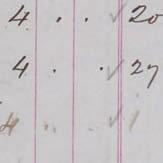 4 . . ✓ 20
4 . . ✓ 27